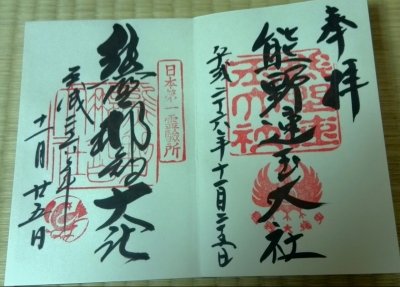 奉拝
熊野速玉大社
平成二十六年十一月二十五日
日本第一霊験所
熊野那智大社
平成二十六年
十一月廿五日